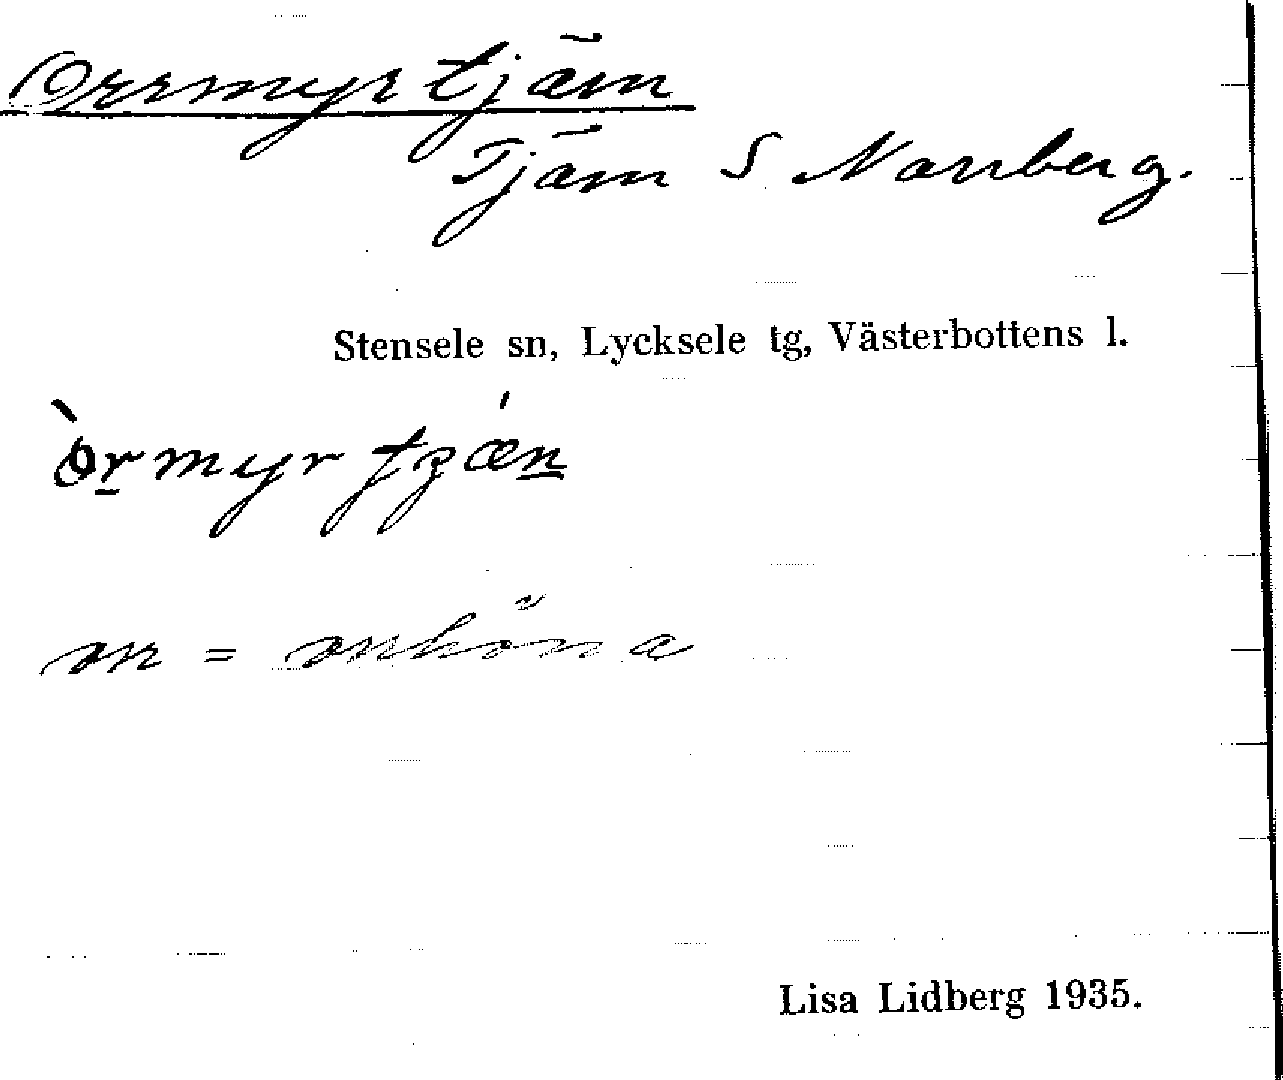 Orrmyrtjärn
Tjärn S Norrberg.
Stensele sn, Lycksele tg, Västerbottens l.
orr = orrhöna
Lisa Lidberg 1935.